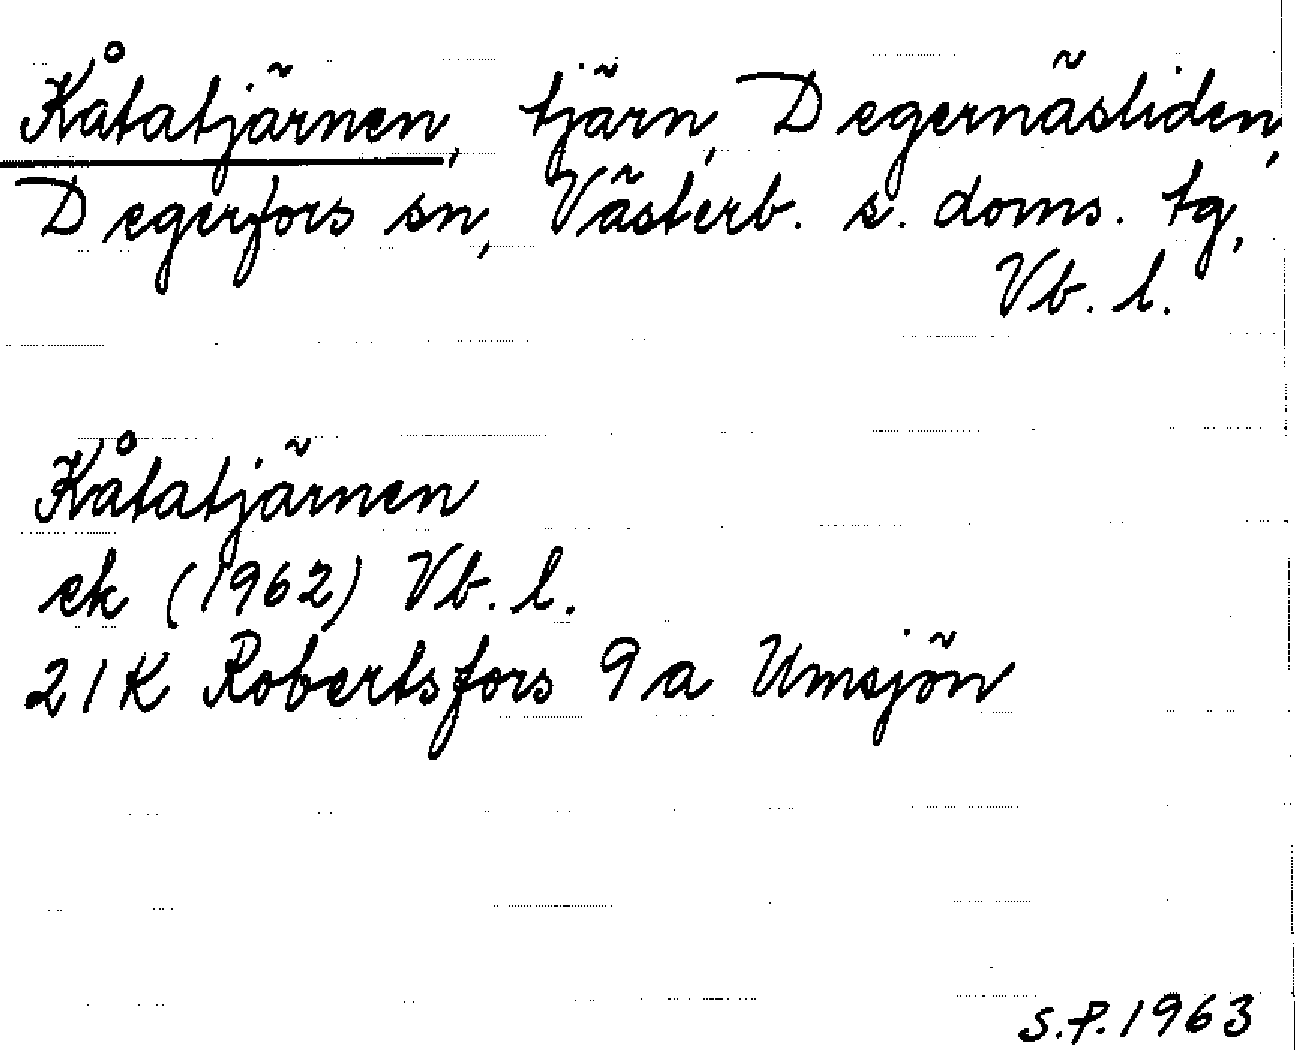 Kåtatjärnen, tjärn, Degernäsliden,
Degerfors sn, Västerb. s. doms. tg,
Vb. l.
Kåtatjärnen
ek (1962) Vb. l.
21K Robertsfors 9a Umsjön
S.P. 1963